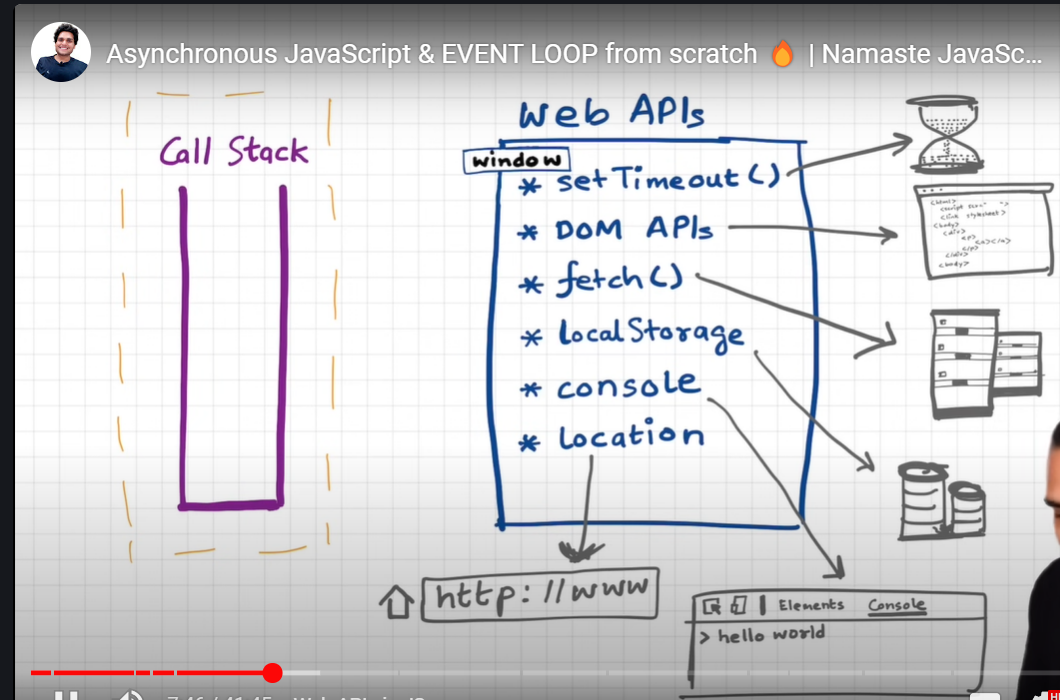 Asynchronous JavaScript & EVENT LOOP from scratch 🔥 | Namaste JavaSc...
Call Stack
Web APIs
window
* setTimeout ()
* DOM APIs
* fetch ()
* localStorage
* console
* location
<html>
<body>
<div>
<p>
</p>
</div>
<body>
http://www
Elements Console
> hello world